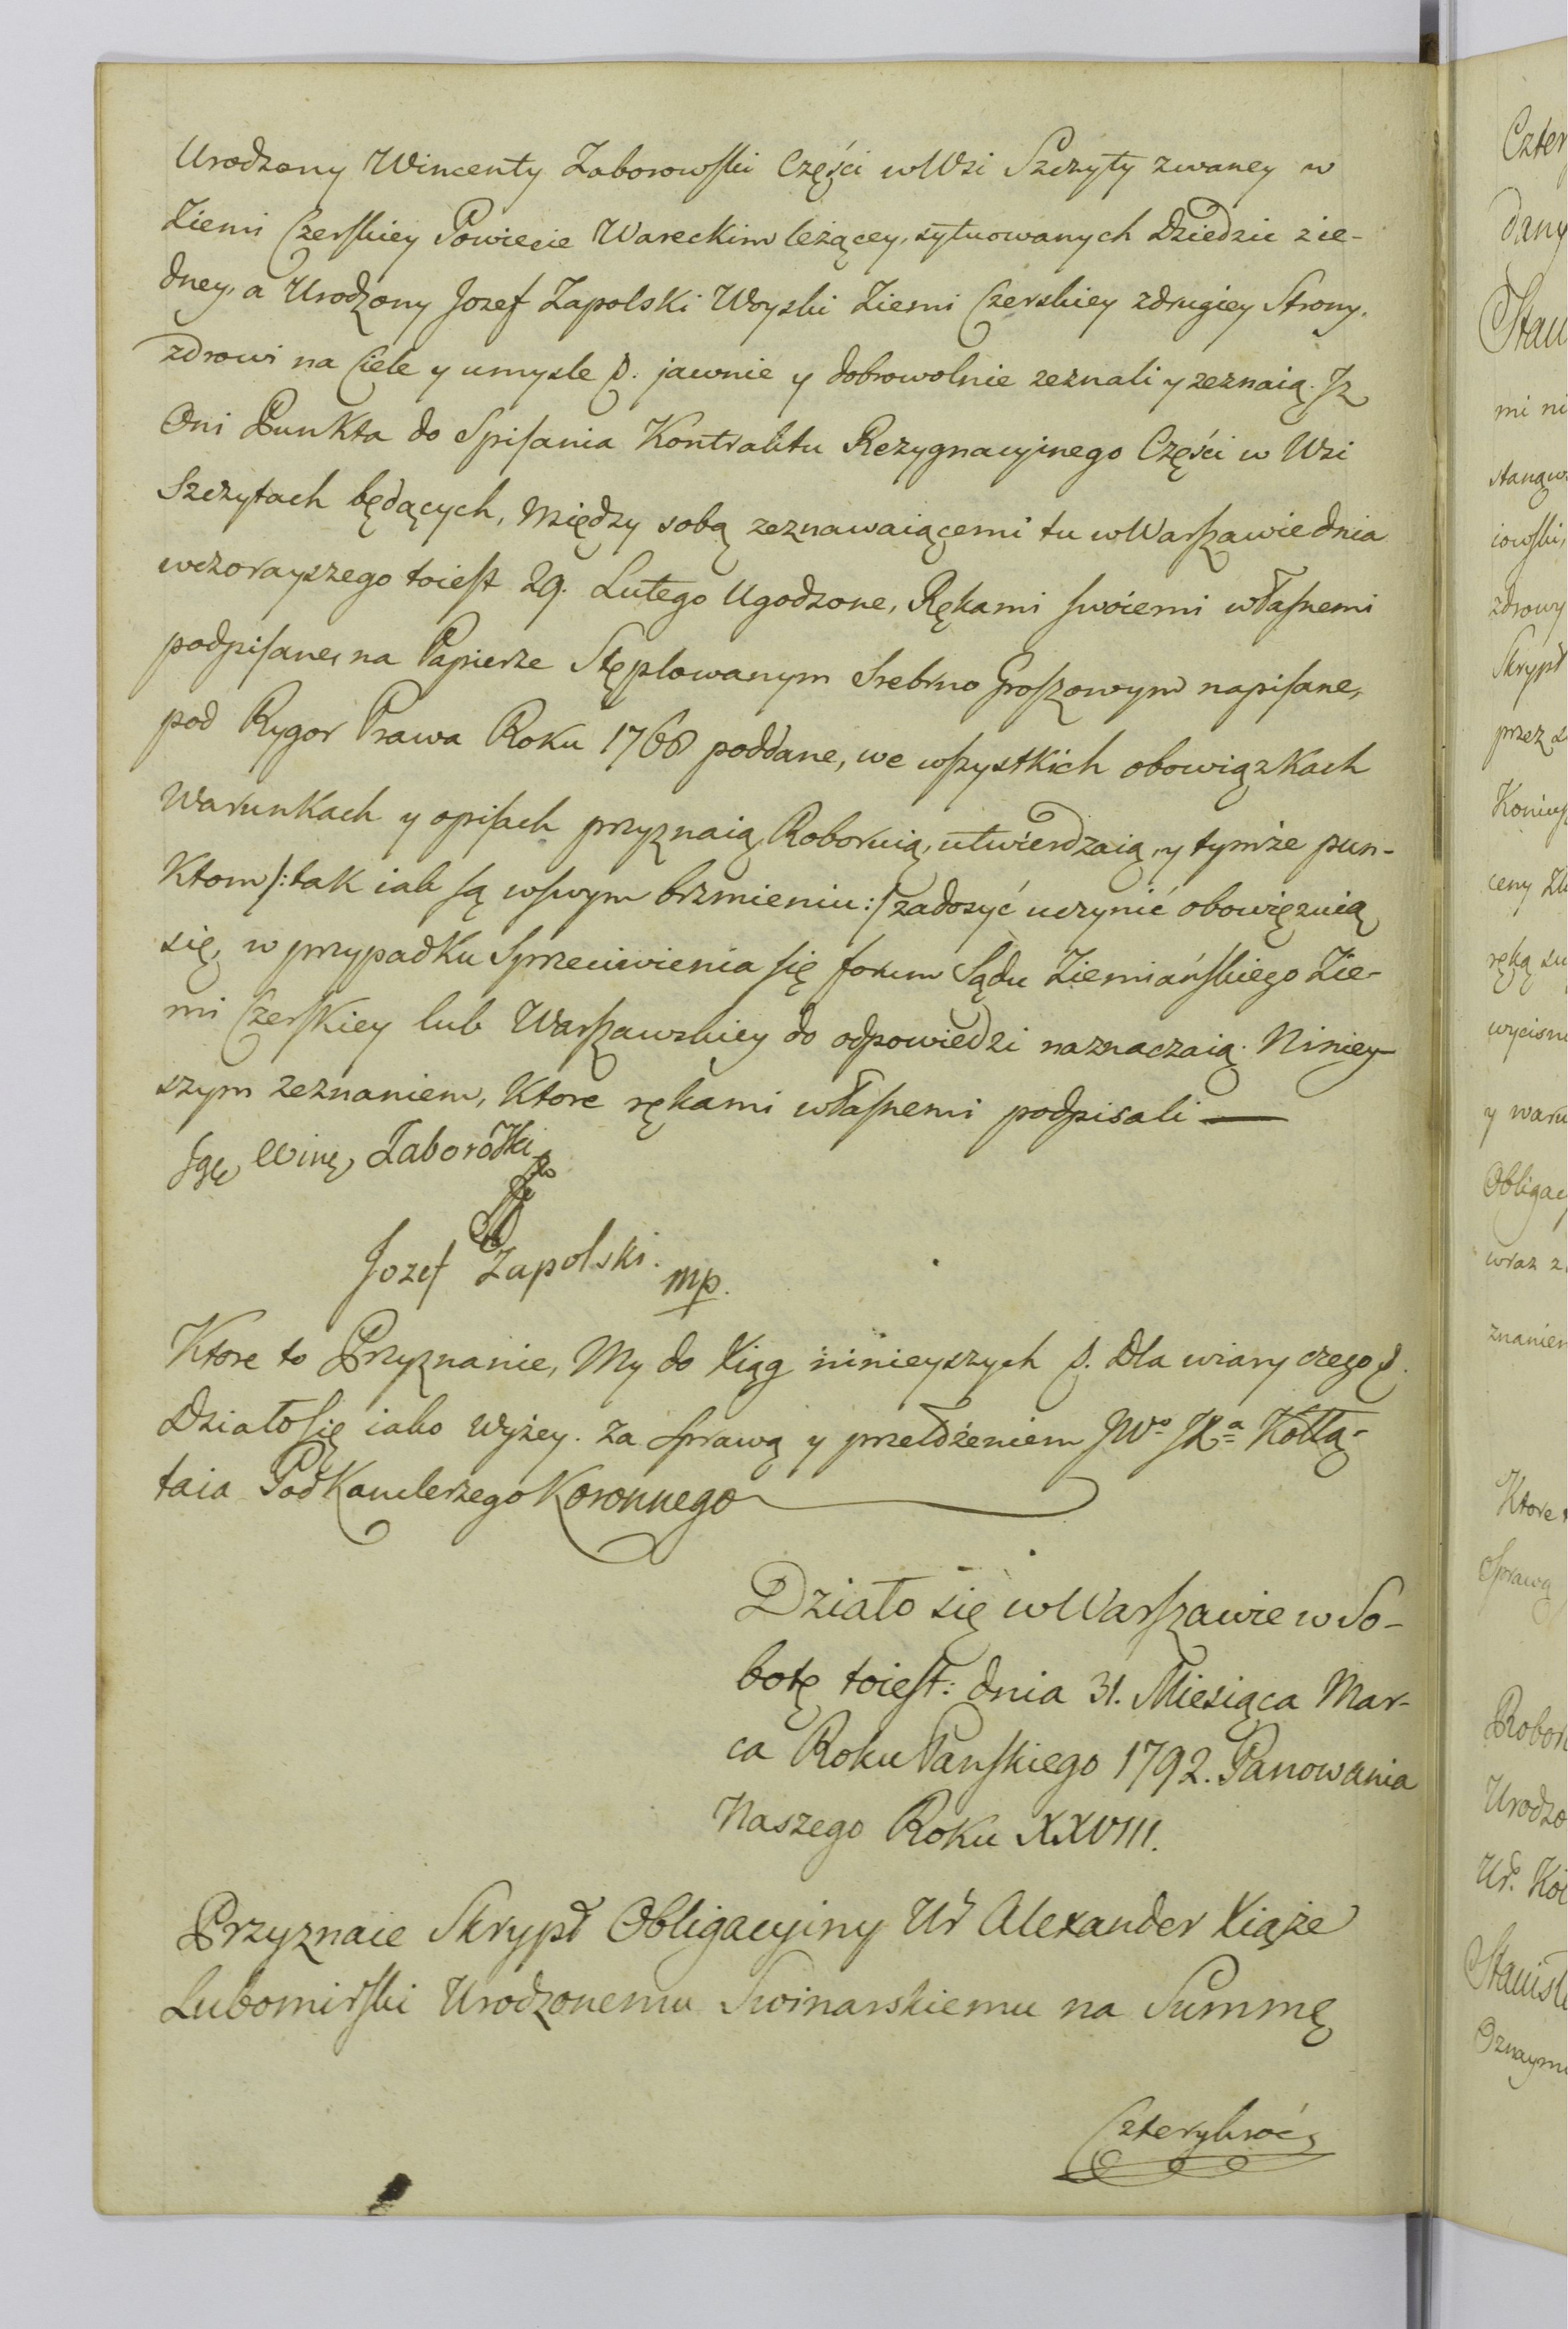 Urodzony Wincenty Zaborowski Części w Wsi Szczyty zwaney w
Ziemi Czerskiey Powiecie Wareckim leżącey, sytuowanych Dziedzic z ie-
dney, a Urodzony Jozef Zapolski Woyski Ziemi Czerskiey z drugiey Strony,
zdrowi na Ciele y umysle p. jawnie y dobrowolnie zeznali y zeznaią. Iż
Oni Punkta do Spisania Kontraktu Rezygnacyinego Części w Wsi
Szczytach będących, między sobą zeznawaiącemi tu w Warszawie dnia
wczorayszego toiest 29. Lutego Ugodzone, Rękami swoiemi własnemi
podpisane, na Papierze Stęplowanym Srebrno Groszowym napisane,
pod Rygor Prawa Roku 1768 poddane, we wszystkich obowiązkach
Warunkach y opisach przyznaią, Roboruią, utwierdzaią, y tymże pun-
Ktom /: tak iak są w swym brzmieniu :/ zadosyć uczynić obowięzuią
się, w przypadku Sprzeciwienia się forum Sądu Ziemiańskiego Zie-
mi Czerskiey lub Warszawskiey do odpowiedzi naznaczaią. Niniey-
szym zeznaniem, Ktore rękami własnemi podpisali —
Jozef Zapolski. mp.
Ktore to Przyznanie, My do Xiąg ninieyszych p. Dla wiary czego p.
Działo się iako wyżey. Za sprawą y przełożeniem JWo JXa Kołłą-
taia Pod Kanclerzego Koronnego
Działo się w Warszawie w So-
botę toiest: dnia 31. Miesiąca Mar-
ca Roku Panskiego 1792. Panowania
Naszego Roku XXVIII.
Przyznaie Skrypt Obligacyiny Ur Alexander Xiąże
Lubomirski Urodzonemu Swinarskiemu na Summę
Czterykroć